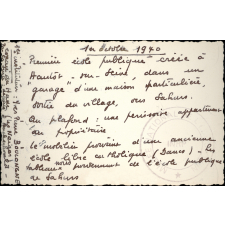 1er Octobre 1940
Première école publique créée à
Hautot-sur-Seine, dans un
"garage" d'une maison particulière,
sortie du village, vers Sahurs.
Au plafond : une périssoire appartenant
au propriétaire
Le mobilier provient d'une ancienne
école libre catholique (Bancs) - Les
tableaux noirs proviennent de l'école publique
de Sahurs